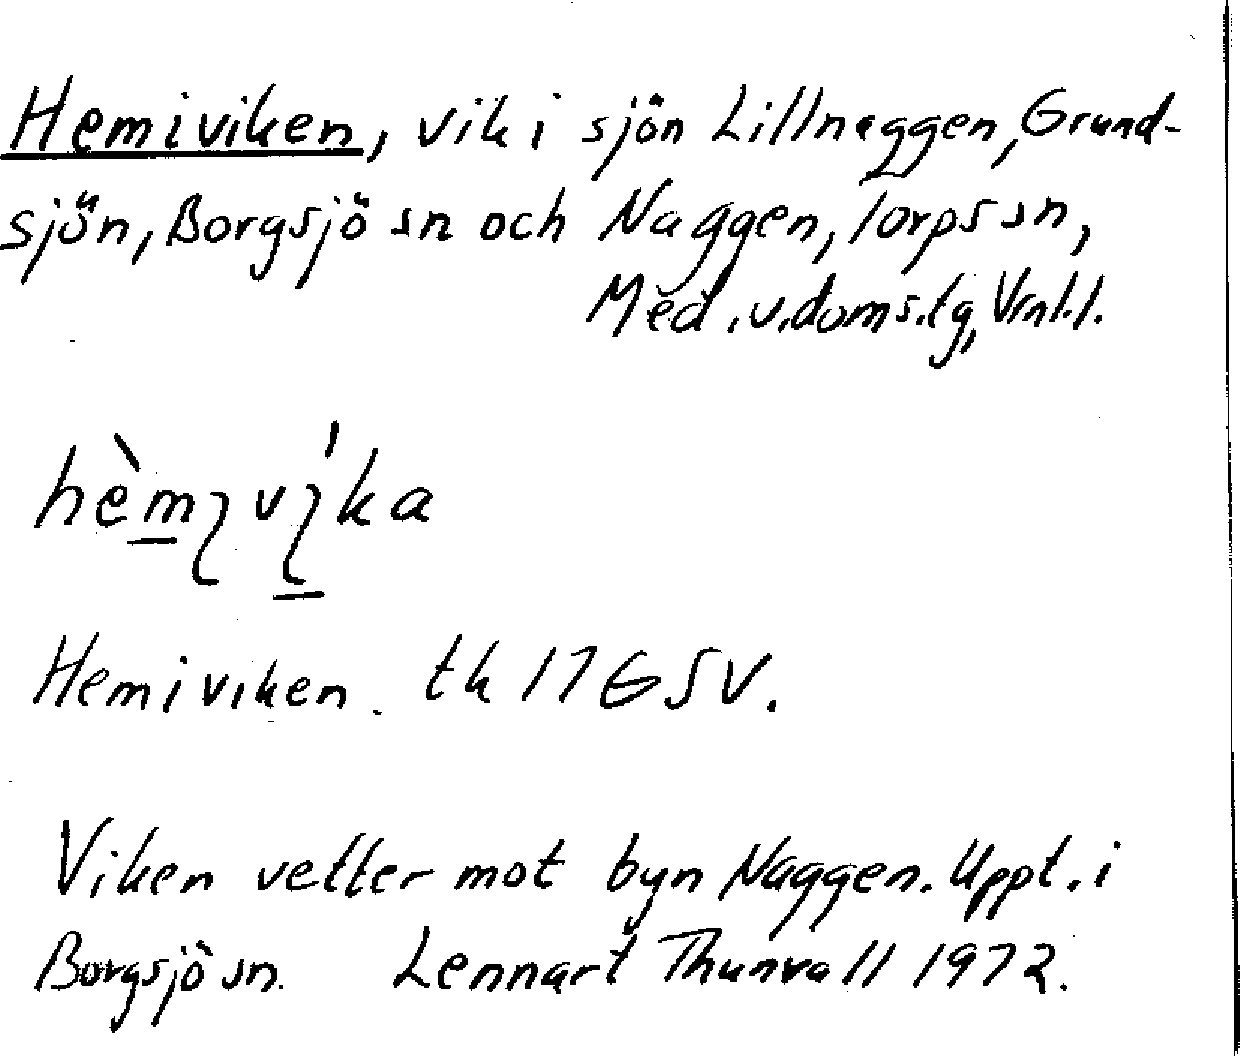 Hemiviken, vik i sjön Lillnaggen, Grund-
sjön, Borgsjö sn och Naggen, Torps sn,
Med. v. doms.tg, Vrnl.l.
hèmɩvɩ́ka
Hemiviken. tk 17G SV.
Viken vetter mot byn Naggen. Uppt. i
Borgsjö sn. Lennart Thunvall 1972.